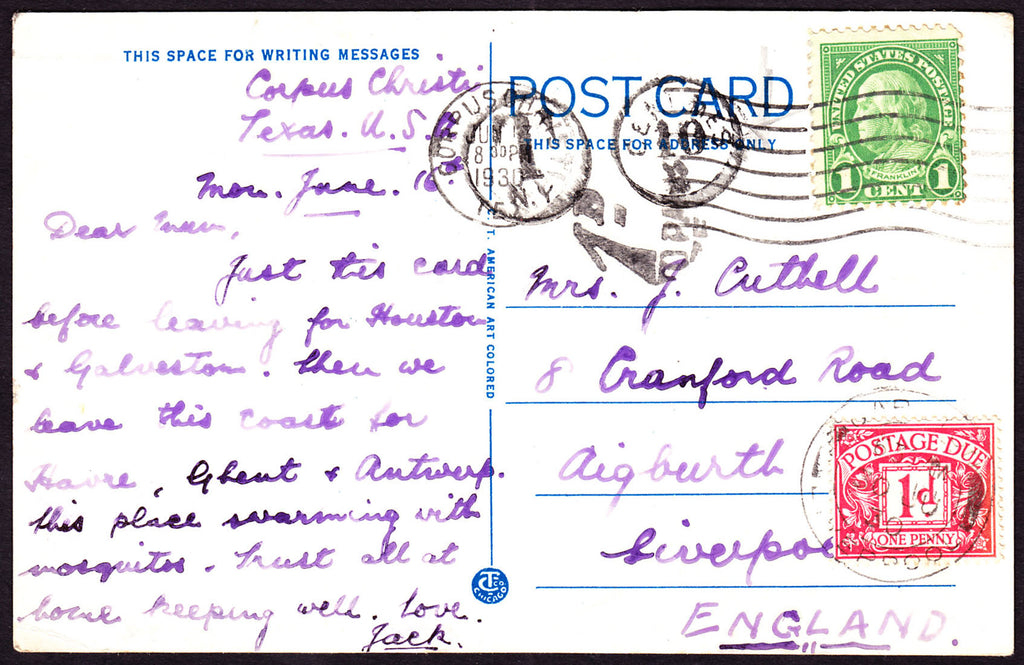 THIS SPACE FOR WRITING MESSAGES
Corpus Christi
Texas. U.S.A
Mon. June. 16
Dear Mum,
Just this card
before leaving for Houston
& Galveston. then we
leave this coast for
Havre, Ghent & Antwerp.
this place swarming with
mosquitos. Trust all at
home keeping well. love.
Jack.
C.T. AMERICAN ART COLORED
CTCO
CHICAGO
POST CARD
THIS SPACE FOR ADDRESS ONLY
CORPUS CH
JUN
8 30 PM
1930
1D.
10
UNITED STATES POSTAGE
FRANKLIN
1 CENT 1
Mrs. J. Cuthell
8 Cranford Road
Aigburth
Liverpoo
ENGLAND.
POSTAGE DUE
1d
ONE PENNY